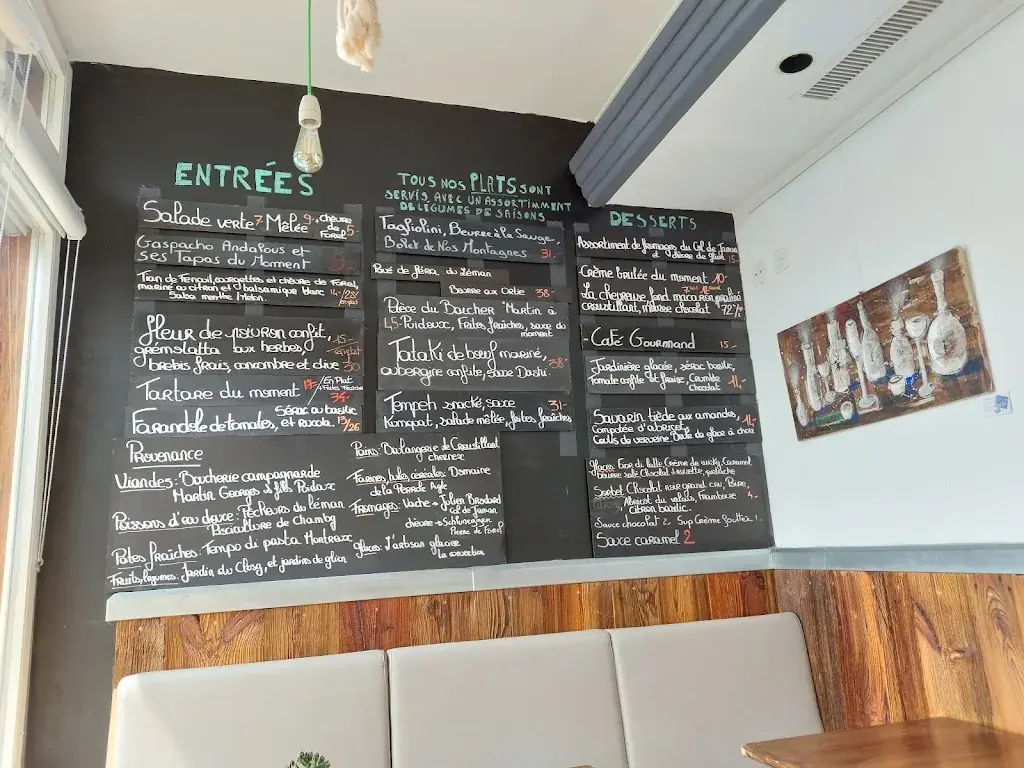 ENTRÉES
Salade verte 7 Mêlée 9.- chèvre de Forel 5
Gaspacho Andalous et
ses Tapas du Moment
Tian de Fenouil, courgettes et chèvre de Forel,
mariné au citron et balsamique blanc
Salsa menthe Melon. 14.-/28/
fleur de poivron confit, 15.-
aux herbes,
brebis frais, concombre et olive 30
Tartare du moment 17.- /En Plat
34.-
Sérac au basilic
Farandole de tomates, et rucola. 13/26
TOUS NOS PLATS SONT
SERVIS AVEC UN ASSORTIMENT
DE LÉGUMES DE SAISONS
Tagliolini, Beurre à la Sauge,
Bolet de Nos Montagnes 31.-
Pavé de féra du Léman
Beurre aux Ortie 38.-
Pièce du Boucher "Martin à
45.- Puidoux, Frites fraîches, sauce du
moment
Tataki de bœuf mariné,
aubergine confite, sauce Dashi. 38.-
Tempeh snacké, sauce 31.-
Kumquat, salade mêlée, frites fraîches
DESSERTS
Assortiment de fromages du Col de Jaman
15.-
Crème brulée du moment 10.-
La chevreuse fond macaron praliné
croustillant, mousse chocolat
- Café Gourmand 15.-
Jardinière glacée, sérac basilic,
Tomate confite et fraise, Crumble
chocolat 11.-
Savarin tiède aux amandes,
Compotée d'abricot,
Coulis de verveine Boule de glace à choix 14.-
Glaces: Fior di latte Crème de Caramel
beurre salé Chocolat noisette, pistache
Sorbet Chocolat noir grand cru, Poire,
Abricot du valais, Framboise 4.-
Citron basilic.
Sauce chocolat 2. Sup Crème Gruyère 1.
Sauce caramel 2
Provenance
Viandes: Boucherie campagnarde
Martin Georges et fils Puidoux
Poissons d'eau douce: Pêcheurs du Léman
Pisciculture de Chamby
Pâtes fraîches: Tempo di pasta Montreux
Fruits, légumes: Jardin du Closy, et jardins de glion
Pains: Boulangerie de Croustillant
chernex
Farines, huiles, céréales: Domaine
de la Pierre de Ayle
Fromages: Vache → Julien Brodard
col de Jaman
chèvre →
Pierre de Forel
glaces: L'artisan glacier